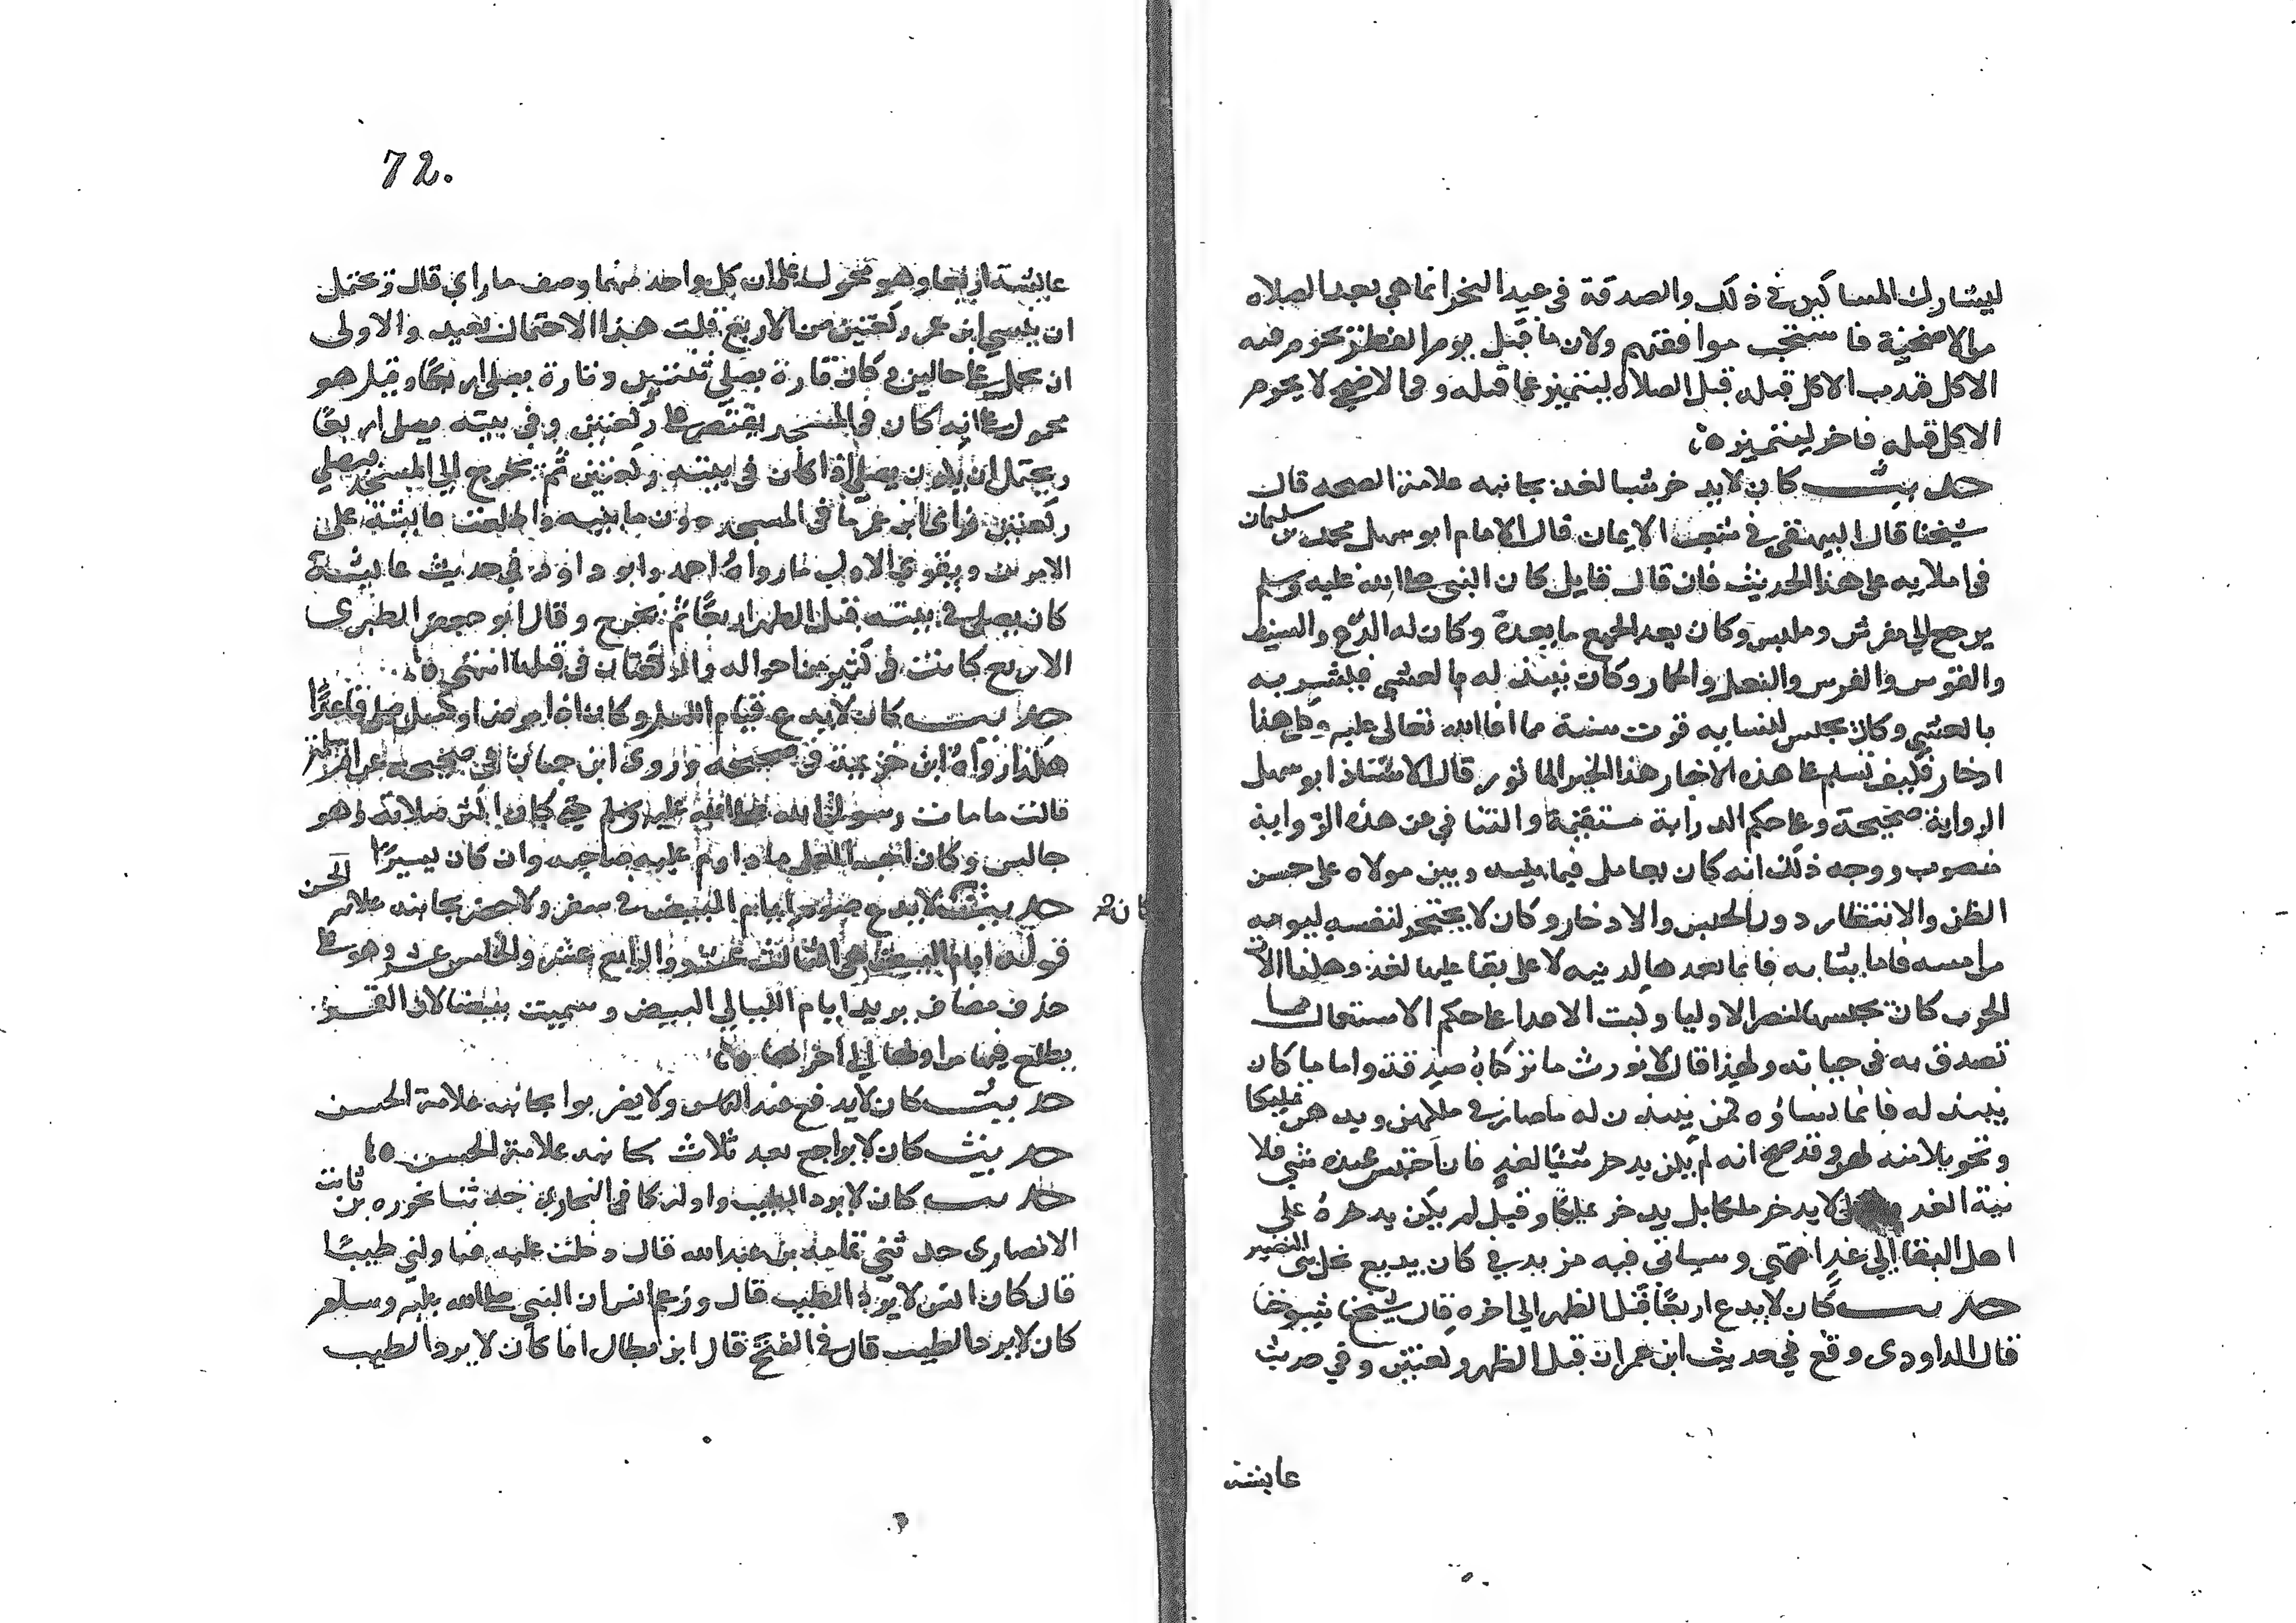 ليشارك المساكين في ذلك والصدقة في عيد النحر انما هي بعد الصلاه
من الاضحية فاستحب موافقتهم ولان ما قبل يوم الفطر يحرم فيه
الاكل فندب الاكل قبله قبل الصلاه ليتميز عما قبله وفي الاضحى لا يحرم
الاكل قبله فاخر ليتميز ه
حديث كان لا يدخر شيا لغد بجانبه علامة الصحه قال
شيخنا قال البيهقي في شعب الايمان قال الامام ابو سهل محمد بن سليمان
في املايه على هذا الحديث فان قال قايل كان النبي صلى الله عليه وسلم
يرجع الى مفرش وملبس وكان يعد للجمع ما يعده وكان له الدرع والسيف
والقوس والفرس والبغل والحمار وكان ينبذ له بالعشي فيشربه
بالعشي وكان يحبس لنسايه قوت سنة مما افا الله تعالى عليه وكل هذا
ادخار فكيف نسلم على هذه الاخبار هذا الخبر الماثور قال الاستاذ ابو سهل
الرواية صحيحة وعلى حكم الدراية مستقيمة والتنافي عن هذه الرواية
منصوب ووجه ذلك انه كان يعامل فيما بينه وبين مولاه على حسن
الظن والانتظار دون الحبس والادخار وكان لا يحتجر لنفسه ليومه
من امسه فاما ثيابه فانما يعدها لدينه لا على بقا عليها لغد وهكذا الات
الحرب كان يحبسها لنصر الاوليا وكبت الاعدا على حكم الاستعمال مما
تصدق به في حياته ولهذا قال لا نورث ما تركناه صدقة واما ما كان
ينبذ له فانما نساؤه كن ينبذن له ما صار في ملكهن ويدهن تمليكا
وتحويلا منه لهن وقد صح انه لم يكن يدخر شيئا لغد فان احتبس عنده شي فلا
نية الغد لا يدخر ملكا بل يدخر تمليكا وقيل لم يكن يدخره على
اهل البقا الى غد انتهى وسياتي فيه مزيد في كان يبيع نخل بني النضير
حديث كان لا يدع اربعا قبل الظهر الى اخره قال شيخ شيوخنا
قال الداودي وقع في حديث ابن عمر ان قبل الظهر ركعتين وفي حديث
عايشة
72.
عايشة اربعا وهو محمول على ان كل واحد منهما وصف ما راى قال ويحتمل
ان ينسي ابن عمر ركعتين من الاربع قلت هذا الاحتمال بعيد والاولى
ان يحمل على حالين فكان تارة يصلي ثنتين وتارة يصلي اربعا وقيل هو
محمول على انه كان في المسجد يقتصر على ركعتين وفي بيته يصلي اربعا
ويحتمل ان يكون يصلي اذا كان في بيته ركعتين ثم يخرج الى المسجد فيصلي
ركعتين فراى ابن عمر ما في المسجد دون ما في بيته واطلعت عايشة على
الامرين ويقوي الاول ما رواه احمد وابو داود في حديث عايشة
كان يصلي في بيته قبل الظهر اربعا ثم يخرج وقال ابو جعفر الطبري
الاربع كانت في كثير من احواله والركعتان في قليلها انتهى ه
حديث كان لا يدع قيام الليل وكان اذا مرض او كسل صلى قاعدا
هكذا رواه ابن خزيمة في صحيحه وروى ابن حبان في صحيحه عن ام سلمة
قالت ما مات رسول الله صلى الله عليه وسلم حتى كان اكثر صلاته وهو
جالس وكان احب العمل ما داوم عليه صاحبه وان كان يسيرا
حديث كان لا يدع صوم ايام البيض في سفر ولا حضر بجانبه علامة الحسن
قوله ايام البيض هي الثالث عشر والرابع عشر والخامس عشر وهو على
حذف مضاف يريد ايام الليالي البيض وسميت بيضا لان القمر
يطلع فيها من اولها الى اخرها ه
حديث كان لا يدفع عنه الناس ولا يضربوا بجانبه علامة الحسن
حديث كان لا يراجع بعد ثلاث بجانبه علامة الحسن ه
حديث كان لا يرد الطيب واوله كما في البخاري حدثنا عزره بن ثابت
الانصاري حدثني ثمامة بن عبد الله قال دخلت عليه فناولني طيبا
قال كان انس لا يرد الطيب قال وزعم انس ان النبي صلى الله عليه وسلم
كان لا يرد الطيب قال في الفتح قال ابن بطال انما كان لا يرد الطيب